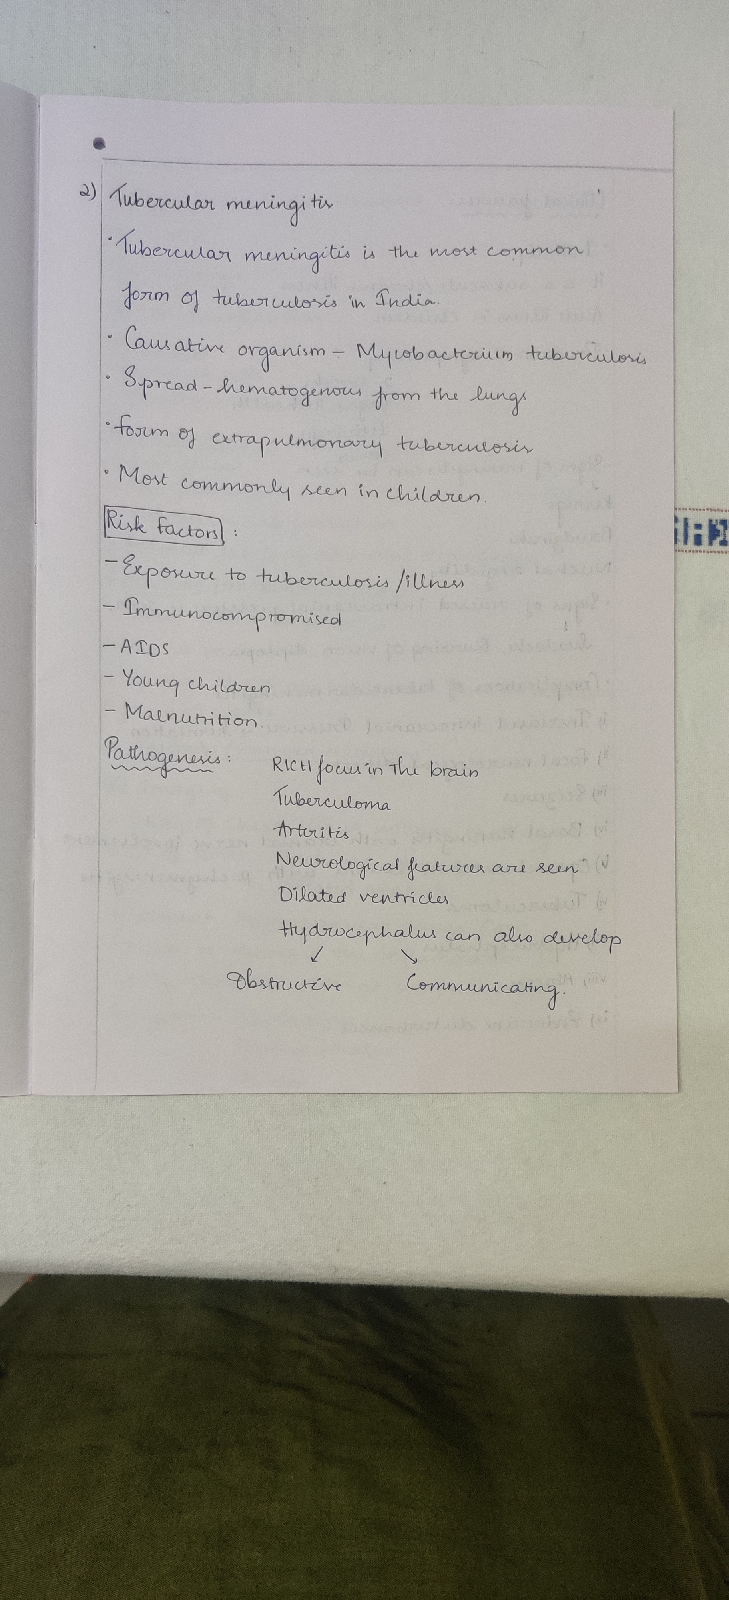 2) Tubercular meningitis
· Tubercular meningitis is the most common
form of tuberculosis in India.
· Causative organism - Mycobacterium tuberculosis
· Spread - hematogenous from the lungs
· form of extrapulmonary tuberculosis
· Most commonly seen in children.
Risk factors :
- Exposure to tuberculosis/illness
- Immunocompromised
- AIDS
- Young children
- Malnutrition.
Pathogenesis :
RICH focus in the brain
Tuberculoma
Arteritis
Neurological features are seen
Dilated ventricles
Hydrocephalus can also develop
↙ ↘
Obstructive Communicating.